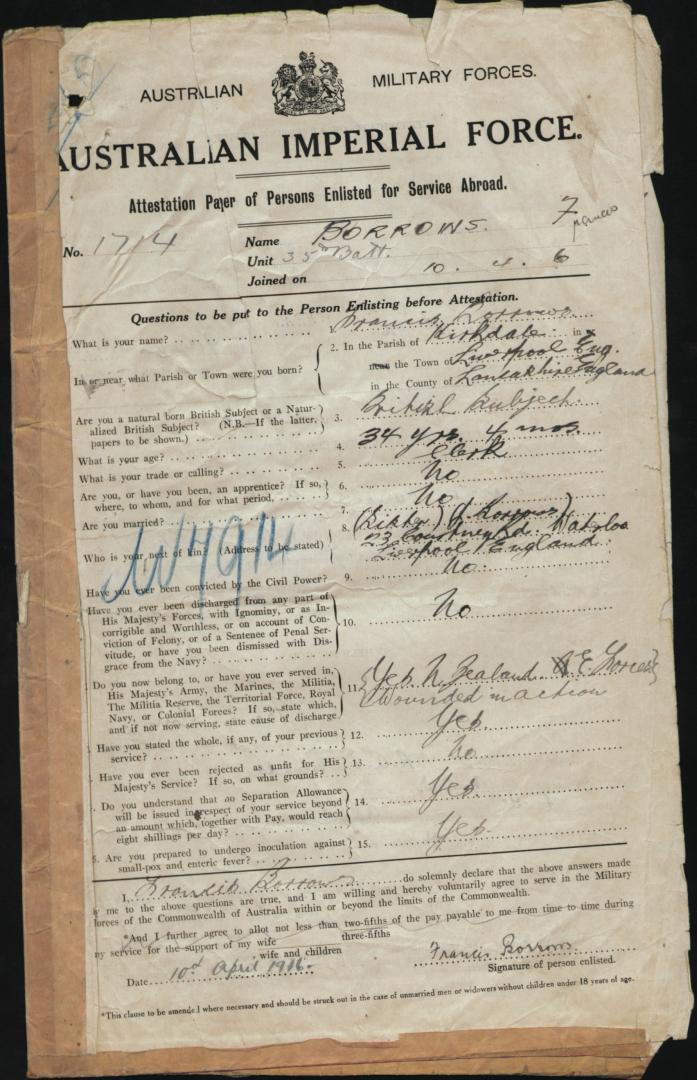 AUSTRALIAN MILITARY FORCES.
AUSTRALIAN IMPERIAL FORCE.
Attestation Paper of Persons Enlisted for Service Abroad.
No. 1714
Name BORROWS. F Francis
Unit 35th Batt.
Joined on 10. 4. 6
Questions to be put to the Person Enlisting before Attestation.
What is your name? 1. Francis Borrows
In or near what Parish or Town were you born? 2. In the Parish of Kirkdale in
near the Town of Liverpool Eng.
in the County of Lancashire England
Are you a natural born British Subject or a Naturalized British Subject? (N.B.—If the latter, papers to be shown.) 3. British Subject.
What is your age? 4. 34 yrs. 4 mos.
What is your trade or calling? 5. Clerk
Are you, or have you been, an apprentice? If so, where, to whom, and for what period. 6. No
Are you married? 7. No
Who is your next of kin? (Address to be stated) 8. (Sister) Borrows)
23 Rd. Waterloo
Liverpool England.
W4914
Have you ever been convicted by the Civil Power? 9. No.
Have you ever been discharged from any part of
His Majesty's Forces, with Ignominy, or as In-
corrigible and Worthless, or on account of Con-
viction of Felony, or of a Sentence of Penal Ser-
vitude, or have you been dismissed with Dis-
grace from the Navy? 10. No
Do you now belong to, or have you ever served in,
His Majesty's Army, the Marines, the Militia,
The Militia Reserve, the Territorial Force, Royal
Navy, or Colonial Forces? If so, state which,
and if not now serving, state cause of discharge 11. Yes N. Zealand E. Forces
Wounded in action
Have you stated the whole, if any, of your previous
service? 12. Yes.
Have you ever been rejected as unfit for His
Majesty's Service? If so, on what grounds? 13. No
Do you understand that no Separation Allowance
will be issued in respect of your service beyond
an amount which, together with Pay, would reach
eight shillings per day? 14. Yes.
5. Are you prepared to undergo inoculation against
small-pox and enteric fever? 15. Yes
I, Francis Borrows do solemnly declare that the above answers made
by me to the above questions are true, and I am willing and hereby voluntarily agree to serve in the Military
forces of the Commonwealth of Australia within or beyond the limits of the Commonwealth.
*And I further agree to allot not less than two-fifths of the pay payable to me from time to time during
three-fifths
my service for the support of my wife
wife and children
Date 10th April 1916. Francis Borrows
Signature of person enlisted.
*This clause to be amended where necessary and should be struck out in the case of unmarried men or widowers without children under 18 years of age.